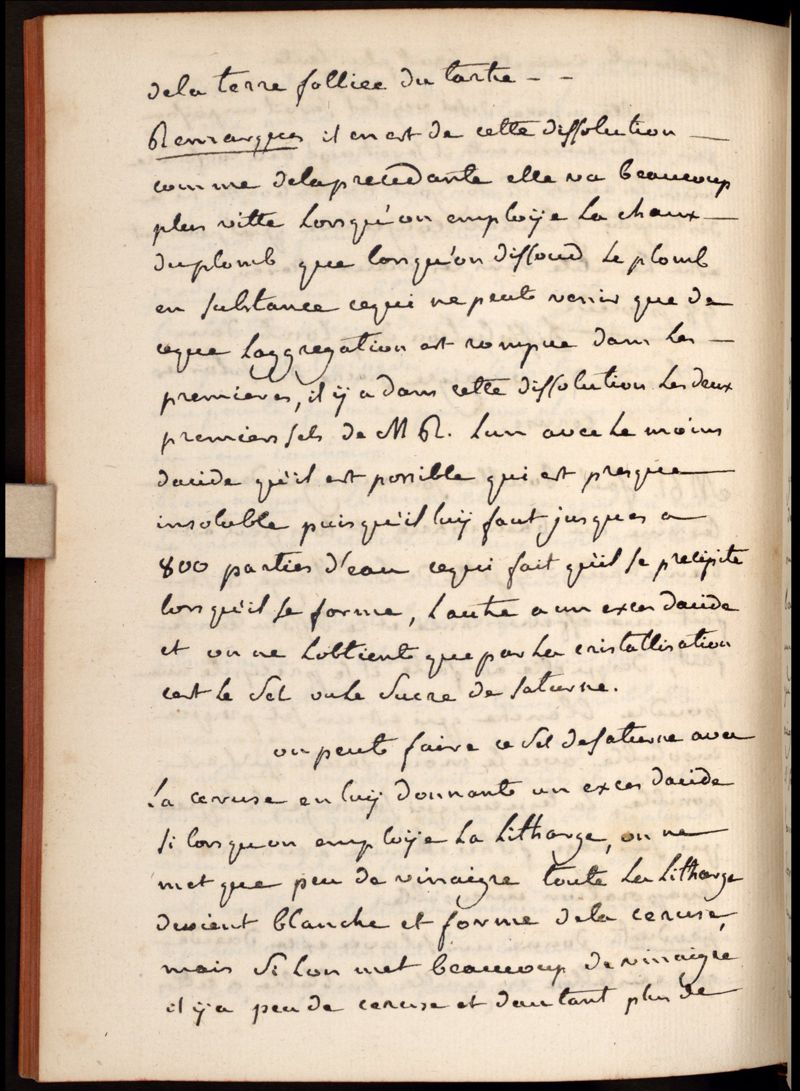 dela terre folliee du tartre - -
Remarques il en est de cette dissolution -
comme delaprecedante elle va beaucoup
plus vitte lorsqu'on employe la chaux -
duplomb que lorsqu'on dissoud le plomb
en substance cequi ne peut venir que de
ceque laggregation est rompue dans les -
premieres, il ÿ a dans cette dissolution les deux
premiers sels de M R. lun avec le moins
dacide qu'il est possible qui est presque
insoluble puisqu'il luÿ faut jusques a
800 parties d'eau cequi fait qu'il se precipite
lorsqu'il se forme, lautre a un exces dacide
et on ne lobtient que par la cristallisation
cest le Sel ou le Sucre de saturne.
on peut faire ce Sel desaturne avec
la ceruse en luÿ donnante un exces dacide
si lorsquon employe la Litharge, on ne
met que peu de vinaigre toute la Litharge
devient blanche et forme dela ceruse,
mais si lon met beaucoup de vinaigre
il ÿ a peu de ceruse et dautant plus de